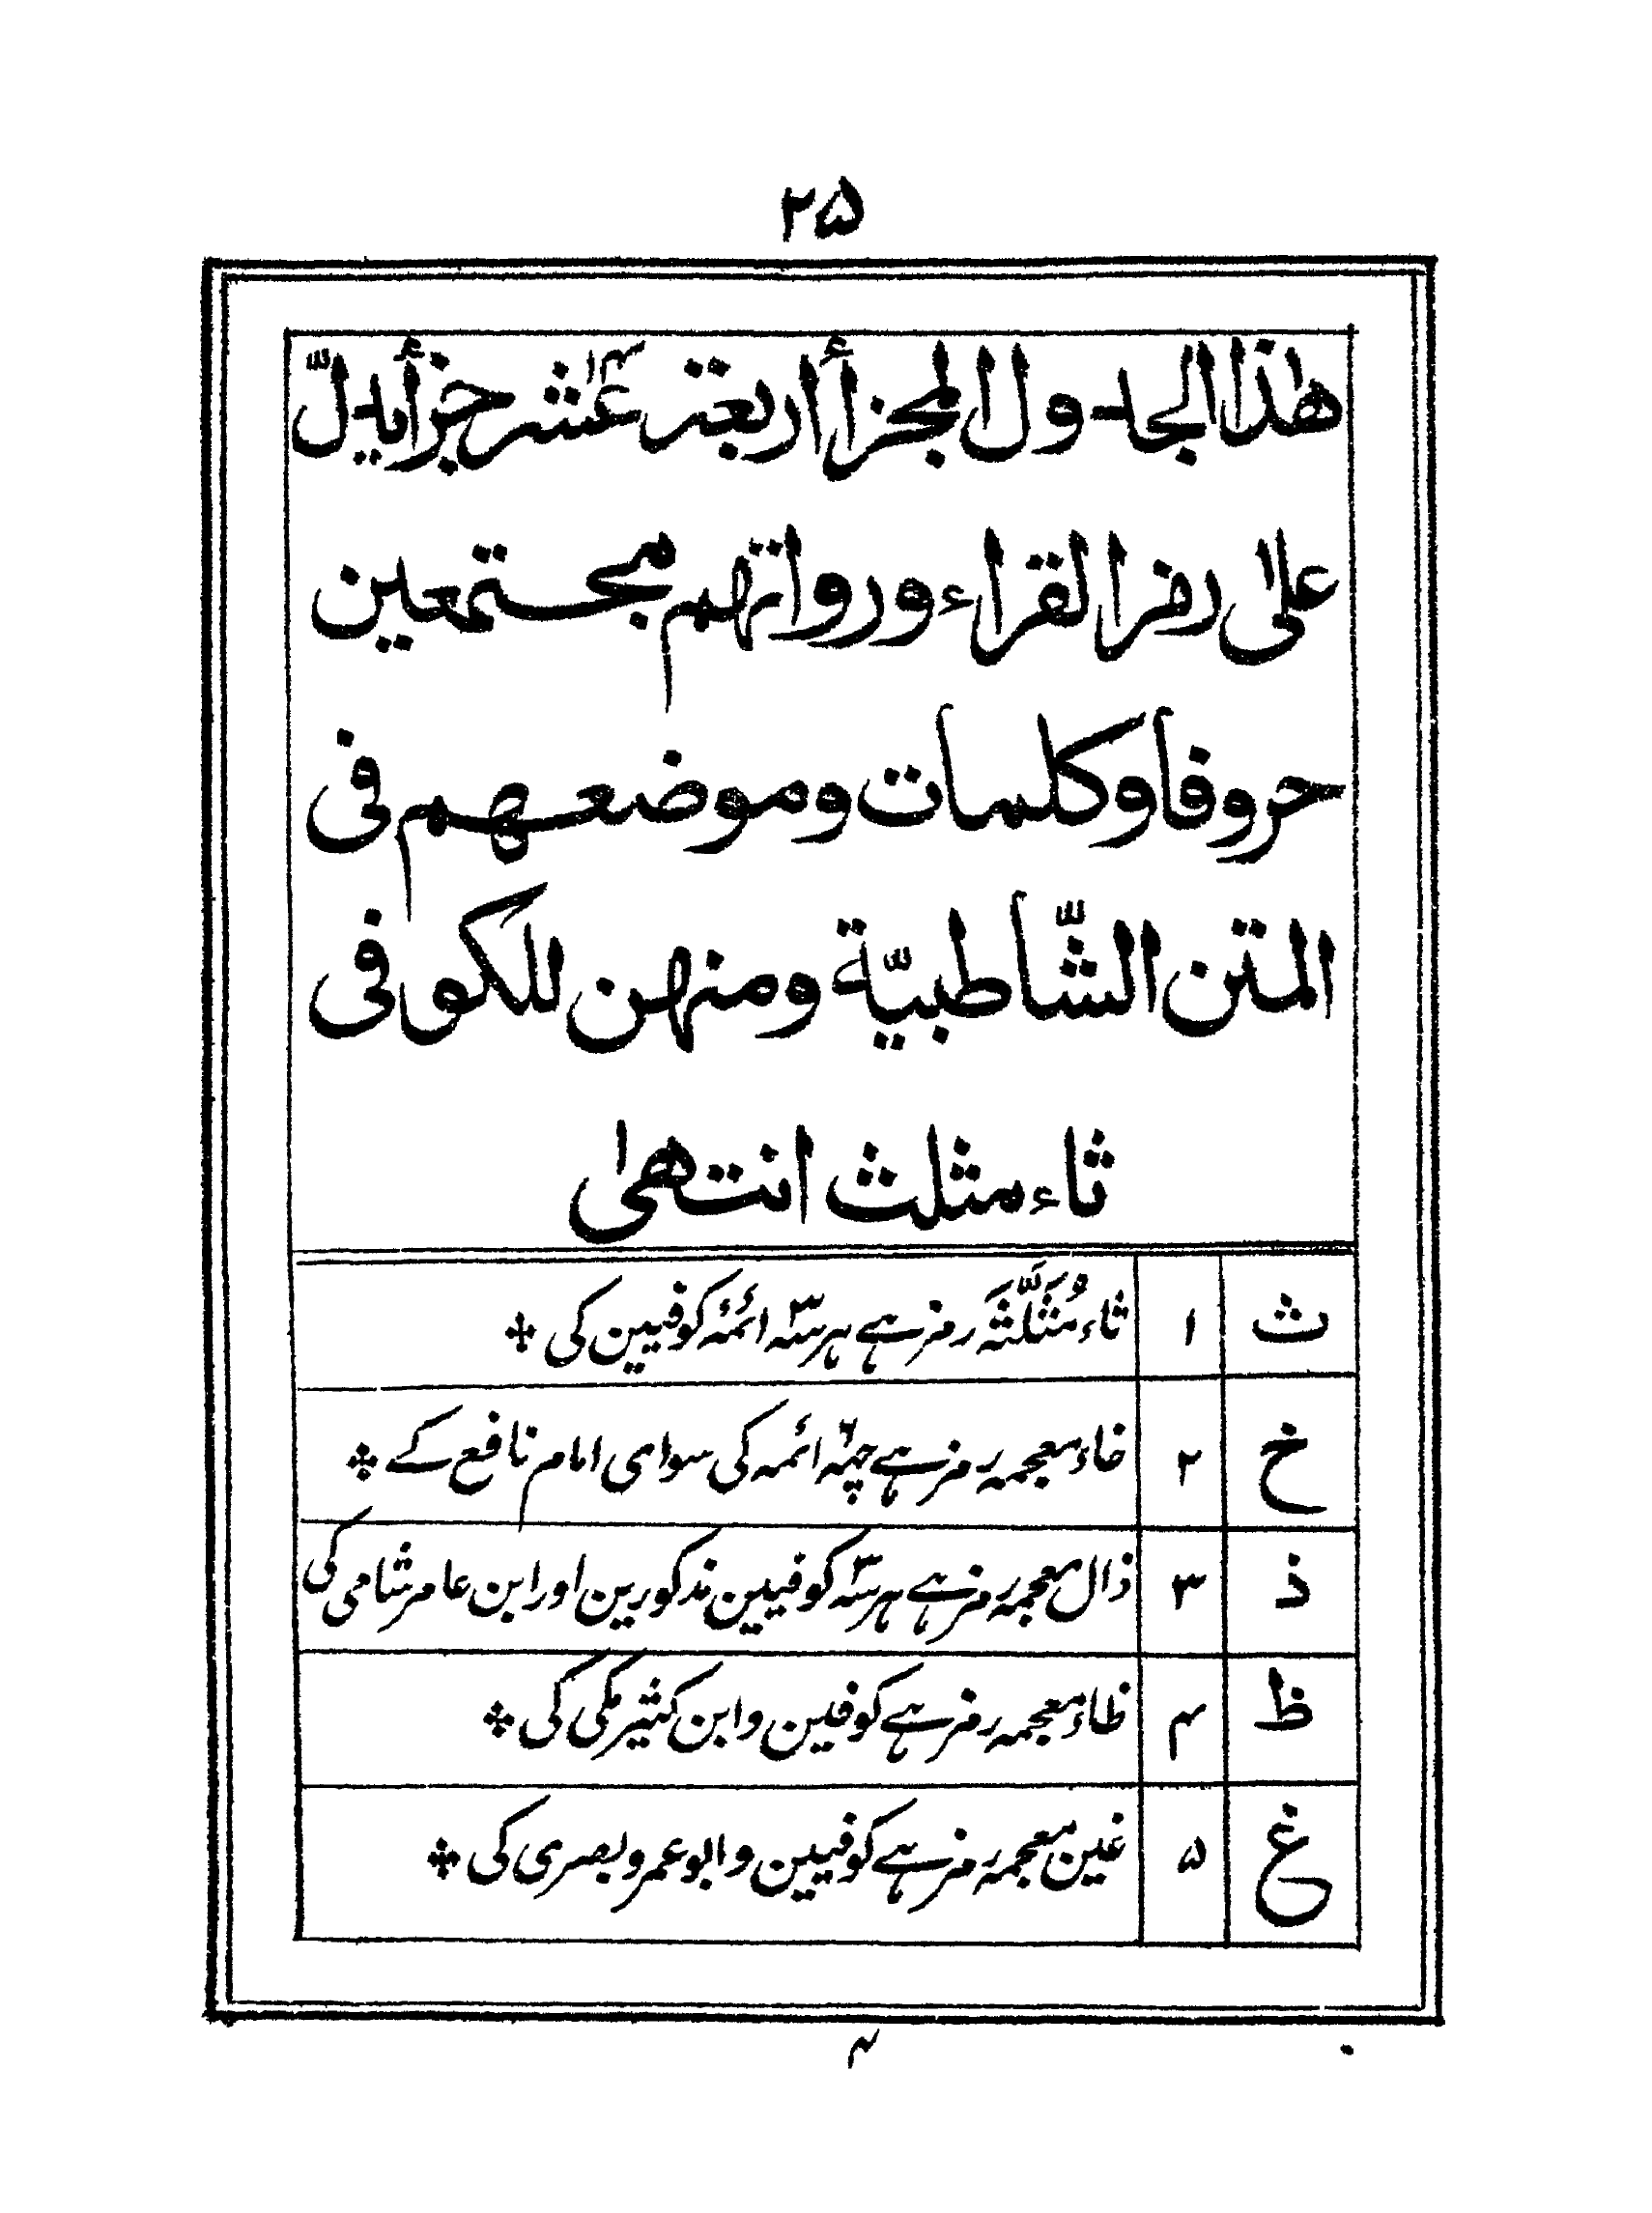 ۲۵
هٰذا الجدول المجزأ أربعة عشر ۱۴ جزأ یدلّ
علیٰ رمز القراء ورواتهم مجتمعین
حروفا وکلمات وموضعهم فی
المتن الشّاطبیّة ومنهن للکوفی
ثاء مثلث انتهیٰ
ث ۱ ثاء مُثَلَّثَہ رمز ہے ہر سہ ۳ ائمۂ کوفیین کی
خ ۲ خاء معجمہ رمز ہے چہہ ۶ ائمہ کی سوای امام نافع کے
ذ ۳ ذال معجمہ رمز ہے ہر سہ ۳ کوفیین مذکورین اور ابن عامر شامی کی
ظ ۴ ظاء معجمہ رمز ہے کوفین و ابن کثیر مکی کی
غ ۵ غین معجمہ رمز ہے کوفیین و ابوعمرو بصری کی
۴